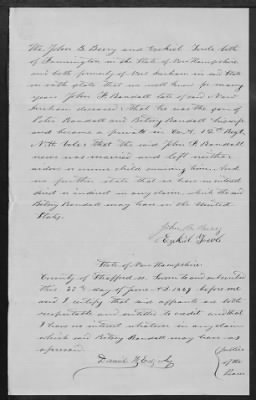 We, John B. Berry and Ezekiel Tuttle both
of Farmington in the State of New Hampshire
and both formerly of New Durham in said State
on oath state that we well knew for many
years John F. Randall late of said New
Durham deceased; that he was the son of
Peter Randall and Betsey Randall his wife
and became a private in Co. 12th Regt.
N.H. Vols. That the said John F. Randall
never was married and left neither
widow or minor child surviving him. And
we further state that we have no interest
direct or indirect in any claim which the said
Betsey Randall may have on the United
States.
John B. Berry
Ezekiel
State of New Hampshire.
County of Strafford ss. Sworn to and subscribed
this 25th day of June A.D. 1869 before me
and I certify that said affiants are both
respectable and entitled to credit and that
I have no interest whatever in any claim
which said Betsey Randall may have as
aforesaid.
Justice
of the
Peace